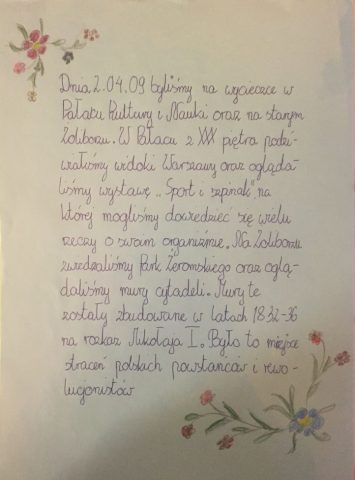 Dnia 2.04.09 byliśmy na wycieczce w
Pałacu Kultury i Nauki oraz na starym
Żoliborzu. W Pałacu z XXX piętra podzi-
wialiśmy widoki Warszawy oraz ogląda-
liśmy wystawę „Sport i szpinak" na
której mogliśmy dowiedzieć się wielu
rzeczy o swoim organizmie. Na Żoliborzu
zwiedzaliśmy Park Żeromskiego oraz oglą-
daliśmy mury cytadeli. Mury te
zostały zbudowane w latach 1832-36
na rozkaz Mikołaja I. Było to miejsce
straceń polskich powstańców i rewo-
lucjonistów